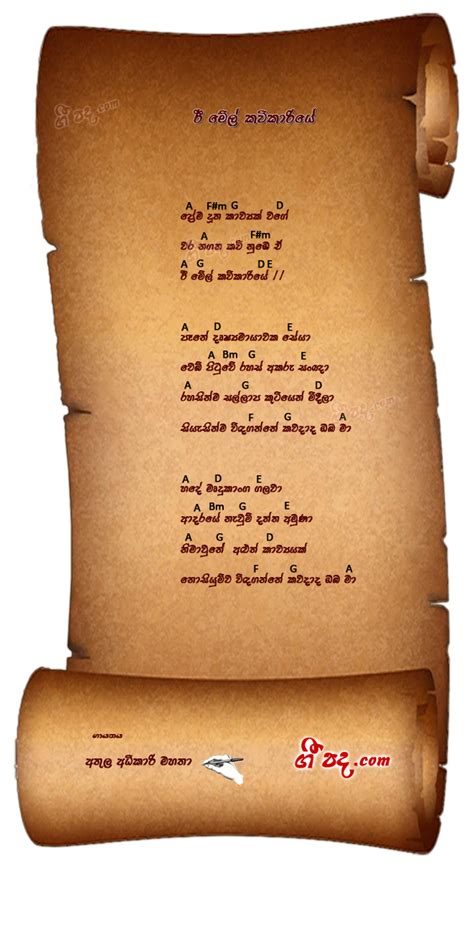 ගී පද.com
ඊ මේල් කවිකාරියේ
A F#m G D
ප්‍රේම දූත කාව්‍යක් වගේ
A F#m
වර නගන කවි නුඹෙ ඒ
A G D E
ඊ මේල් කවිකාරියේ //
A D E
පෑනේ දෘෂ්‍යමායාවක සේයා
A Bm G E
වෙබ් පිටුවේ රහස් අකරු සංඥා
A G D
රහසින්ම සල්ලාප කුටියෙන් මිදිලා
F G A
සියැසින්ම විඳගන්නේ කවදාද ඔබ මා
A D E
හදේ මෘදුකාංග ගලවා
A Bm G E
ආදරයේ නැවුම් දත්ත අමුණා
A G D
නිමාවුනේ අළුත් කාව්‍යයක්
F G A
නොසියුම්ව විඳගන්නේ කවදාද ඔබ මා
ගී පද.com
ගායනය
අතුල අධිකාරි මහතා
ගී පද.com